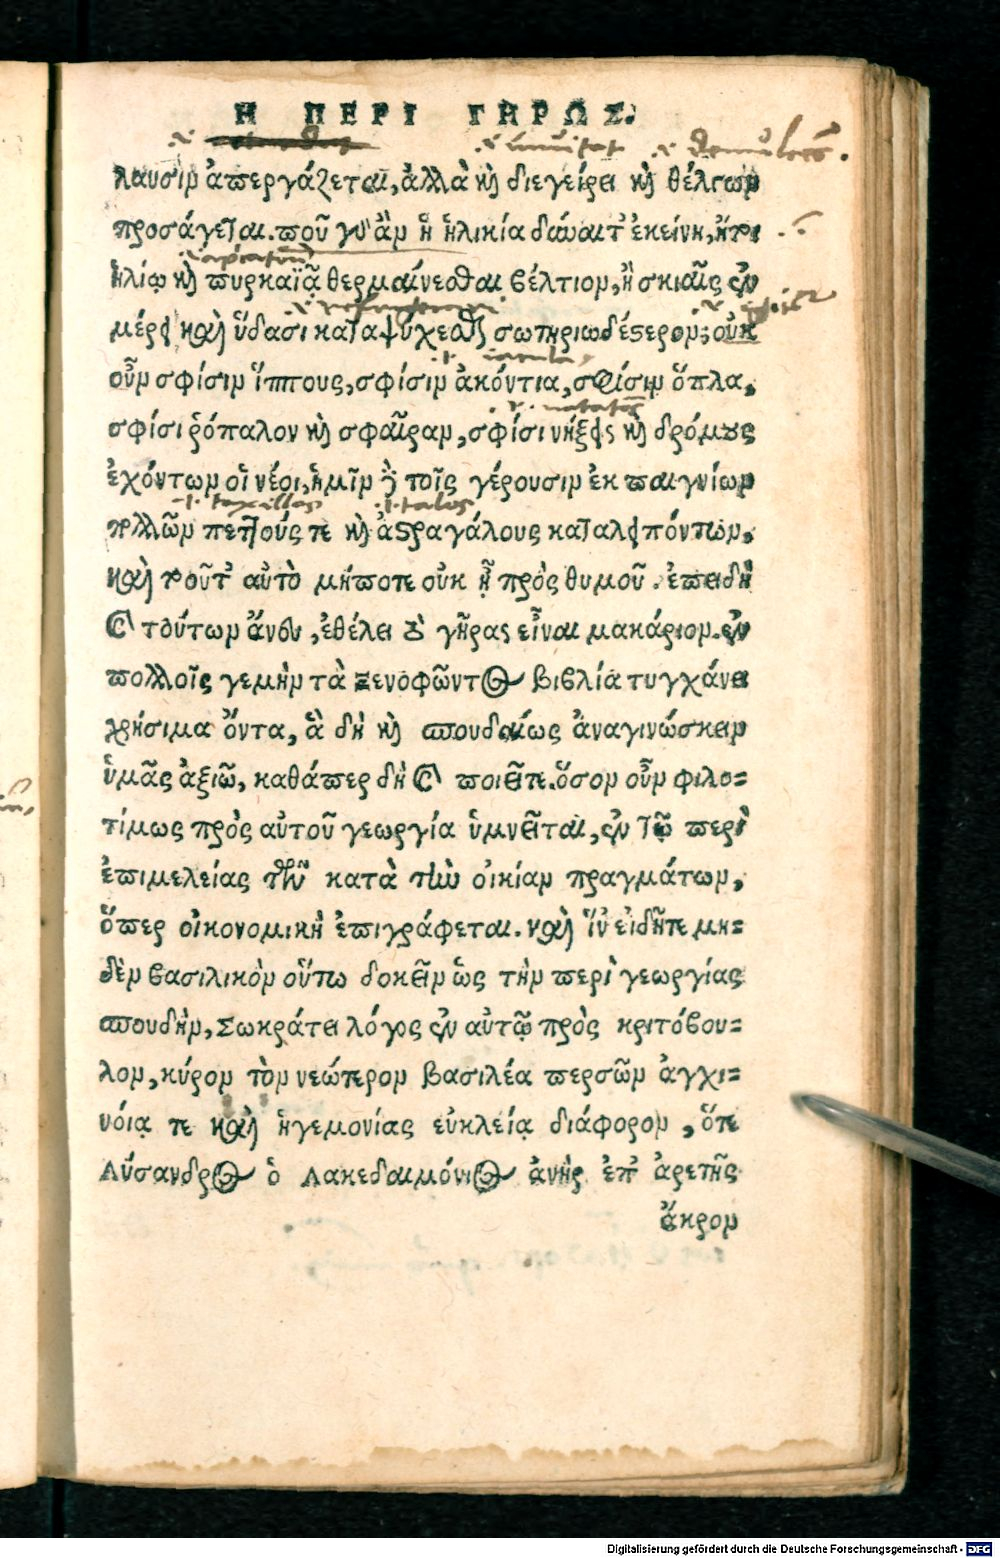 Η ΠΕΡΙ ΓΗΡΩΣ.
invitat
λαυσιν ἀπεργάζεται, ἀλλὰ καὶ διεγείρει καὶ θέλγων
προσάγεται. ποῦ γὰρ ἂν ἡ ἡλικία δύναιτ' ἐκείνη, ἤτοι
ἡλίῳ καὶ πυρκαϊᾷ θερμαίνεσθαι βέλτιον, ἢ σκιαῖς ἐν
μέρει καὶ ὕδασι καταψύχεσθαι σωτηριωδέστερον; οὐκ
οὖν σφίσιν ἵππους, σφίσιν ἀκόντια, σφίσιν ὅπλα,
σφίσι ῥόπαλον καὶ σφαῖραν, σφίσι νήξεις καὶ δρόμους
ἐχόντων οἱ νέοι, ἡμῖν δὲ τοῖς γέρουσιν ἐκ παιγνίων
taxillos talos
πολλῶν πεττούς τε καὶ ἀστραγάλους καταλειπόντων,
καὶ τοῦτ' αὐτὸ μήποτε οὐκ ᾖ πρὸς θυμοῦ. ἐπειδὴ
καὶ τούτων ἄνευ, ἐθέλει τὸ γῆρας εἶναι μακάριον. ἐν
πολλοῖς γεμὴν τὰ Ξενοφῶντος βιβλία τυγχάνει
χρήσιμα ὄντα, ἃ δὴ καὶ σπουδαίως ἀναγινώσκειν
ὑμᾶς ἀξιῶ, καθάπερ δὴ καὶ ποιεῖτε. ὅσον οὖν φιλο=
τίμως πρὸς αὐτοῦ γεωργία ὑμνεῖται, ἐν τῷ περὶ
ἐπιμελείας τῶν κατὰ τὴν οἰκίαν πραγμάτων,
ὅπερ οἰκονομικὴ ἐπιγράφεται. καὶ ἵν' εἰδῆτε μη=
δὲν βασιλικὸν οὕτω δοκεῖν ὡς τὴν περὶ γεωργίας
σπουδὴν, Σωκράτει λόγος ἐν αὐτῷ πρὸς κριτόβου=
λον, κύρον τὸν νεώτερον βασιλέα περσῶν ἀγχι=
νόιᾳ τε καὶ ἡγεμονίας εὐκλείᾳ διάφορον, ὅτε
Λύσανδρος ὁ Λακεδαιμόνιος ἀνὴρ ἐπ' ἀρετῆς
ἄκρον
Digitalisierung gefördert durch die Deutsche Forschungsgemeinschaft - DFG